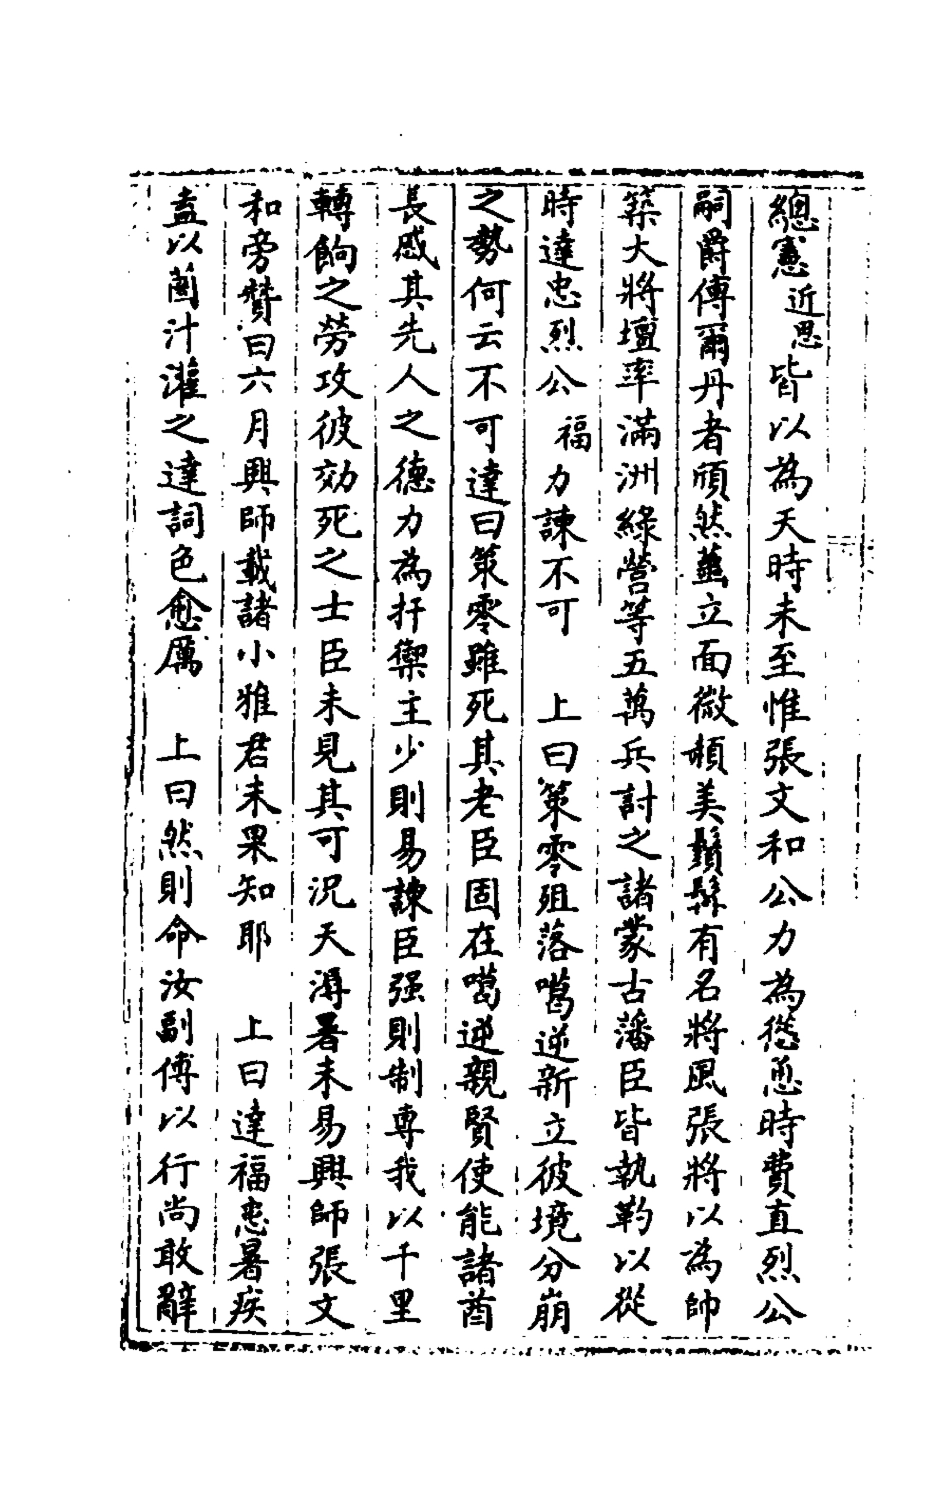 總憲近思皆以為天時未至惟張文和公力為慫恿時費直烈公
嗣爵傅爾丹者頎然蠱立面微頳美鬚髯有名將風張將以為帥
築大將壇率滿洲綠營等五萬兵討之諸蒙古藩臣皆執靮以從
時達忠烈公福力諫不可　上曰策零殂落噶逆新立彼境分崩
之勢何云不可達曰策零雖死其老臣固在噶逆親賢使能諸酋
長感其先人之德力為扞禦主少則易諫臣强則制專我以千里
轉餉之勞攻彼効死之士臣未見其可況天溽暑未易興師張文
和旁贊曰六月興師載諸小雅君未果知耶　上曰達福患暑疾
盍以薗汁灌之達詞色愈厲　上曰然則命汝副傅以行尚敢辭